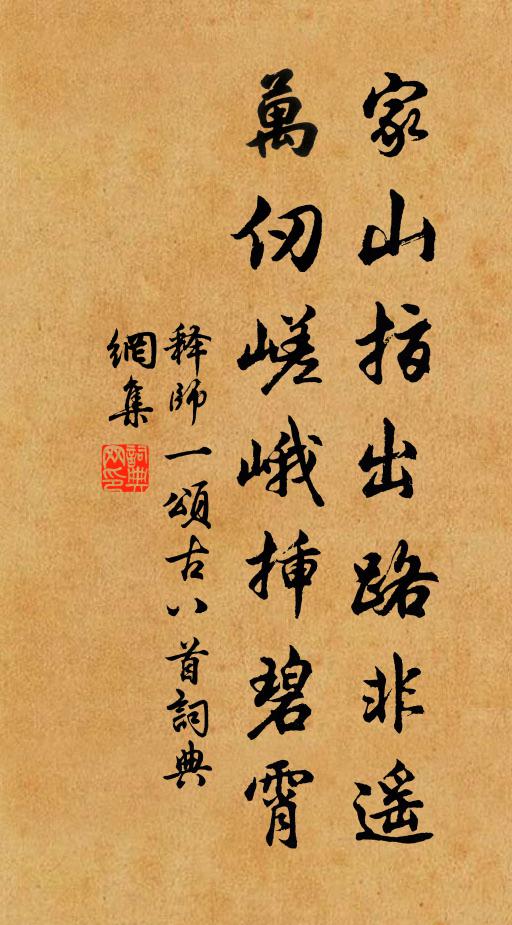 家山指出路非遥
萬仞嵯峨挿碧霄
释師一頌古八首詞典
網集
詞典
网印